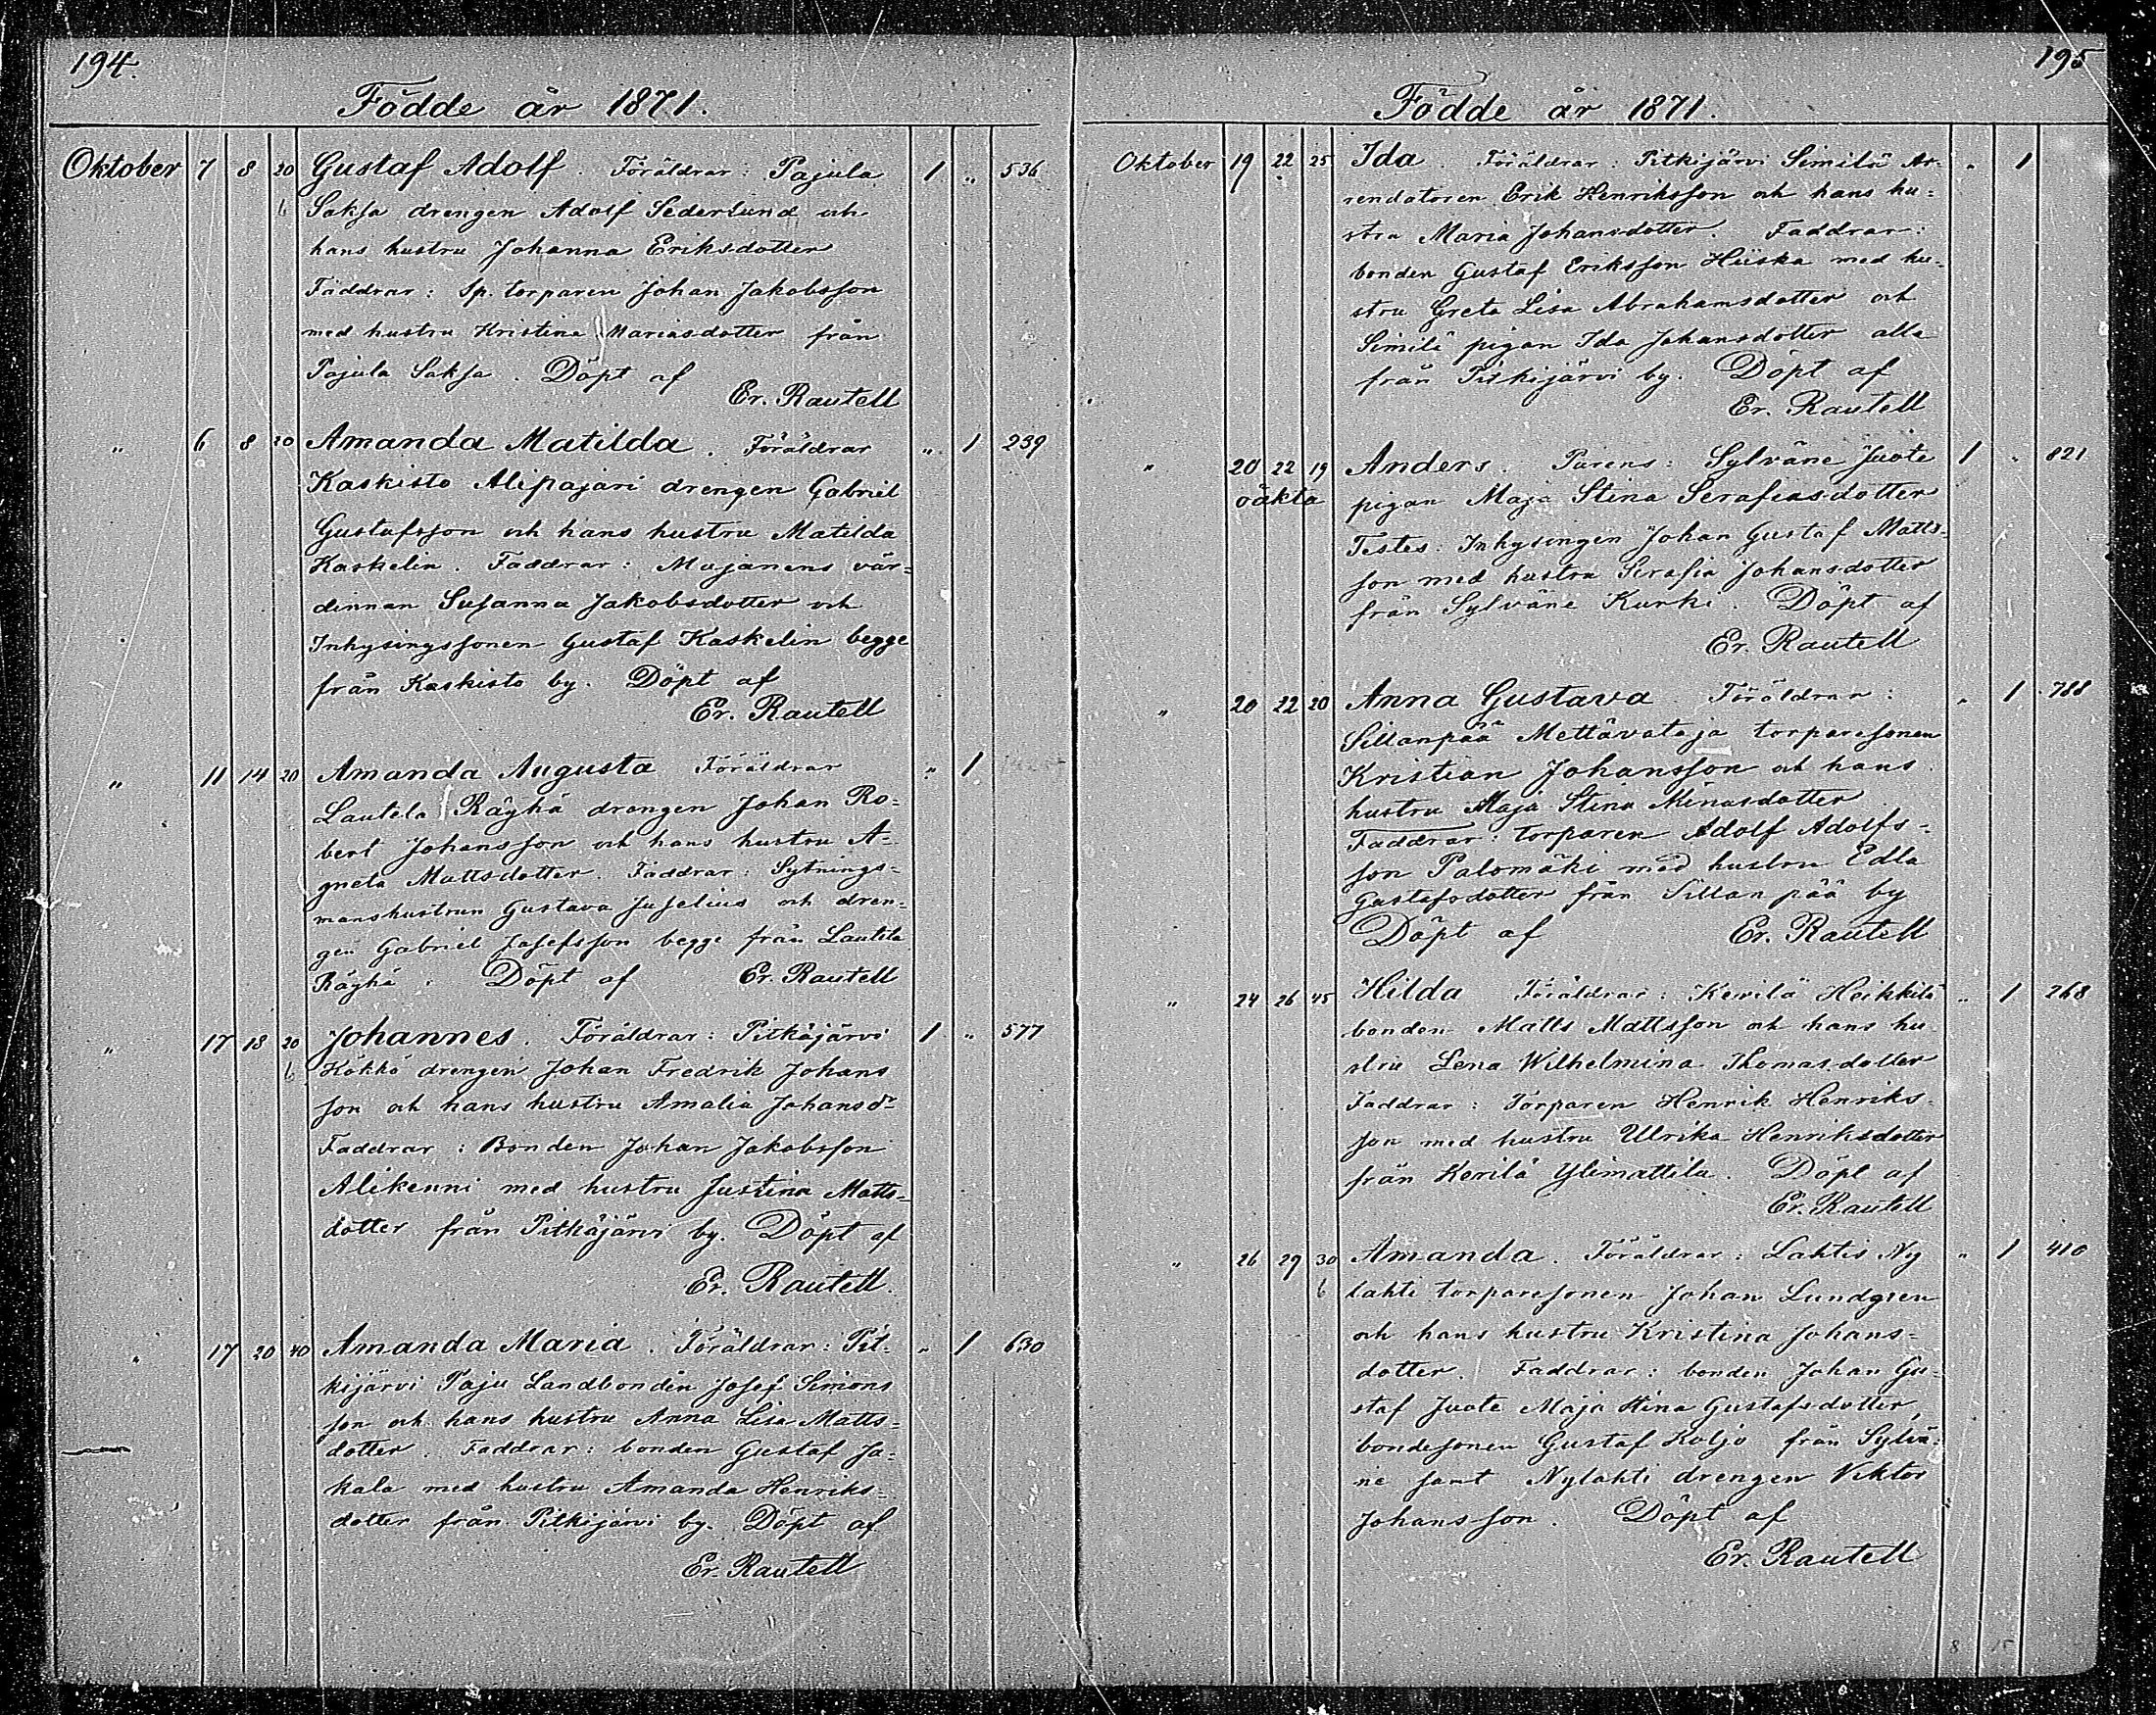 194.
Födde år 1871.
Oktober 7 8 20 Gustaf Adolf. Föräldrar: Pajula 1 " 536
6 Saksa drengen Adolf Sederlund och
hans hustru Johanna Eriksdotter
Faddrar: Sp. torparen Johan Jakobsson
med hustru Kristina Mariasdotter från
Pajula Saksa. Döpt af
Er. Rautell
" 6 8 20 Amanda Matilda. Föräldrar " 1 239
Kaskisto Alipajari drengen Gabriel
Gustafsson och hans hustru Matilda
Kaskelin. Faddrar: Mujanens vär=
dinnan Susanna Jakobsdotter och
Inhysingssonen Gustaf Kaskelin begge
från Kaskisto by. Döpt af
Er. Rautell
" 11 14 20 Amanda Augusta Föräldrar " 1
Lautela Räyhä drengen Johan Ro=
bert Johansson och hans hustru A=
gneta Mattsdotter. Faddrar: Sytnings=
manshustrun Gustava Juselius och dren=
gen Gabriel Josefsson begge från Lautela
Räyhä. Döpt af Er. Rautell
" 17 18 20 Johannes. Föräldrar: Pitkäjärvi 1 " 577
6 Kökkö drengen Johan Fredrik Johans
son och hans hustru Amalia Johansdr
Faddrar: Bonden Johan Jakobsson
Alikenni med hustru Justina Matts=
dotter från Pitkäjärvi by. Döpt af
Er. Rautell.
" 17 20 40 Amanda Maria. Föräldrar: Pit= " 1 630
kijärvi Paju Landbonden Josef Simons
son och hans hustru Anna Lisa Matts=
dotter. Faddrar: bonden Gustaf Ja=
kala med hustru Amanda Henriks=
dotter från Pitkijärvi by. Döpt af
Er. Rautell
195
Födde år 1871.
Oktober 19 22 25 Ida Föräldrar: Pitkijärvi Similä Ar= " 1
rendatoren Erik Henriksson och hans hu=
stru Maria Johansdotter. Faddrar:
bonden Gustaf Eriksson Hiiska med hu=
stru Greta Lisa Abrahamsdotter och
Similä pigan Ida Johansdotter alla
från Pitkijärvi by. Döpt af
Er. Rautell
" 20 22 19 Anders. Parens: Sylväne Juote 1 " 821
oäkta pigan Maja Stina Serafiasdotter
Testes: Inhysingen Johan Gustaf Matts=
son med hustru Serafia Johansdotter
från Sylväne Kurki. Döpt af
Er. Rautell
" 20 22 20 Anna Gustava Föräldrar: " 1 788
Sillanpää Mettävataja torparesonen
Kristian Johansson och hans
hustru Maja Stina Minasdotter
Faddrar: torparen Adolf Adolfs=
son Palomäki med hustru Edla
Gustafsdotter från Sillanpää by
Döpt af Er. Rautell
" 24 26 45 Hilda Föräldrar: Kerilä Heikkilä " 1 268
bonden Matts Mattsson och hans hu
stru Lena Wilhelmina Thomasdotter
Faddrar: Torparen Henrik Henriks=
son med hustru Ulrika Henriksdotter
från Kerilä Ylimattila. Döpt af
Er. Rautell
" 26 29 30 Amanda. Föräldrar: Lahtis Ny " 1 410
6 lahti torparesonen Johan Lundgren
och hans hustru Kristina Johans=
dotter. Faddrar: bonden Johan Gu=
staf Juote Maja Stina Gustafsdotter,
bondesonen Gustaf Koljo från Sylvä=
ne samt Nylahti drengen Viktor
Johansson. Döpt af
Er. Rautell
8 15